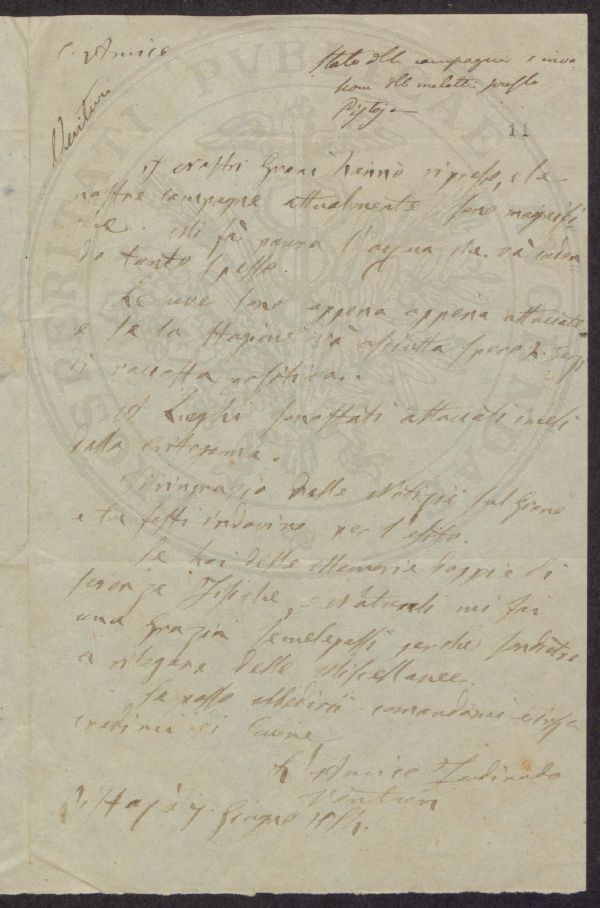 C. Amico
Venturi
Stato delle campagne e inva
sione della malattia presso
Pistoja
11
I Nostri Grani hanno ripreso, e le
nostre campagne attualmente sono magnifi
che. Mi fà paura l'acqua che và
do tanto spesso.
Le uve sono appena appena attaccate
e se la Stagione và asciutta spero
di raccolta
I Luoghi son stati attaccati
dalla Crittogama.
Ti ringrazio delle Notizie sul
e tu fosti indovino per l'esito.
Se hai delle Memorie doppie di
scienze Fisiche, e Naturali mi fai
una Grazia se me le passi perchè
a rilegare delle Miscellanee.
Se posso ubbidirti comandami
credimi di Cuore
L'Amico Ferdinando
Venturi
Pistoja 7 Giugno